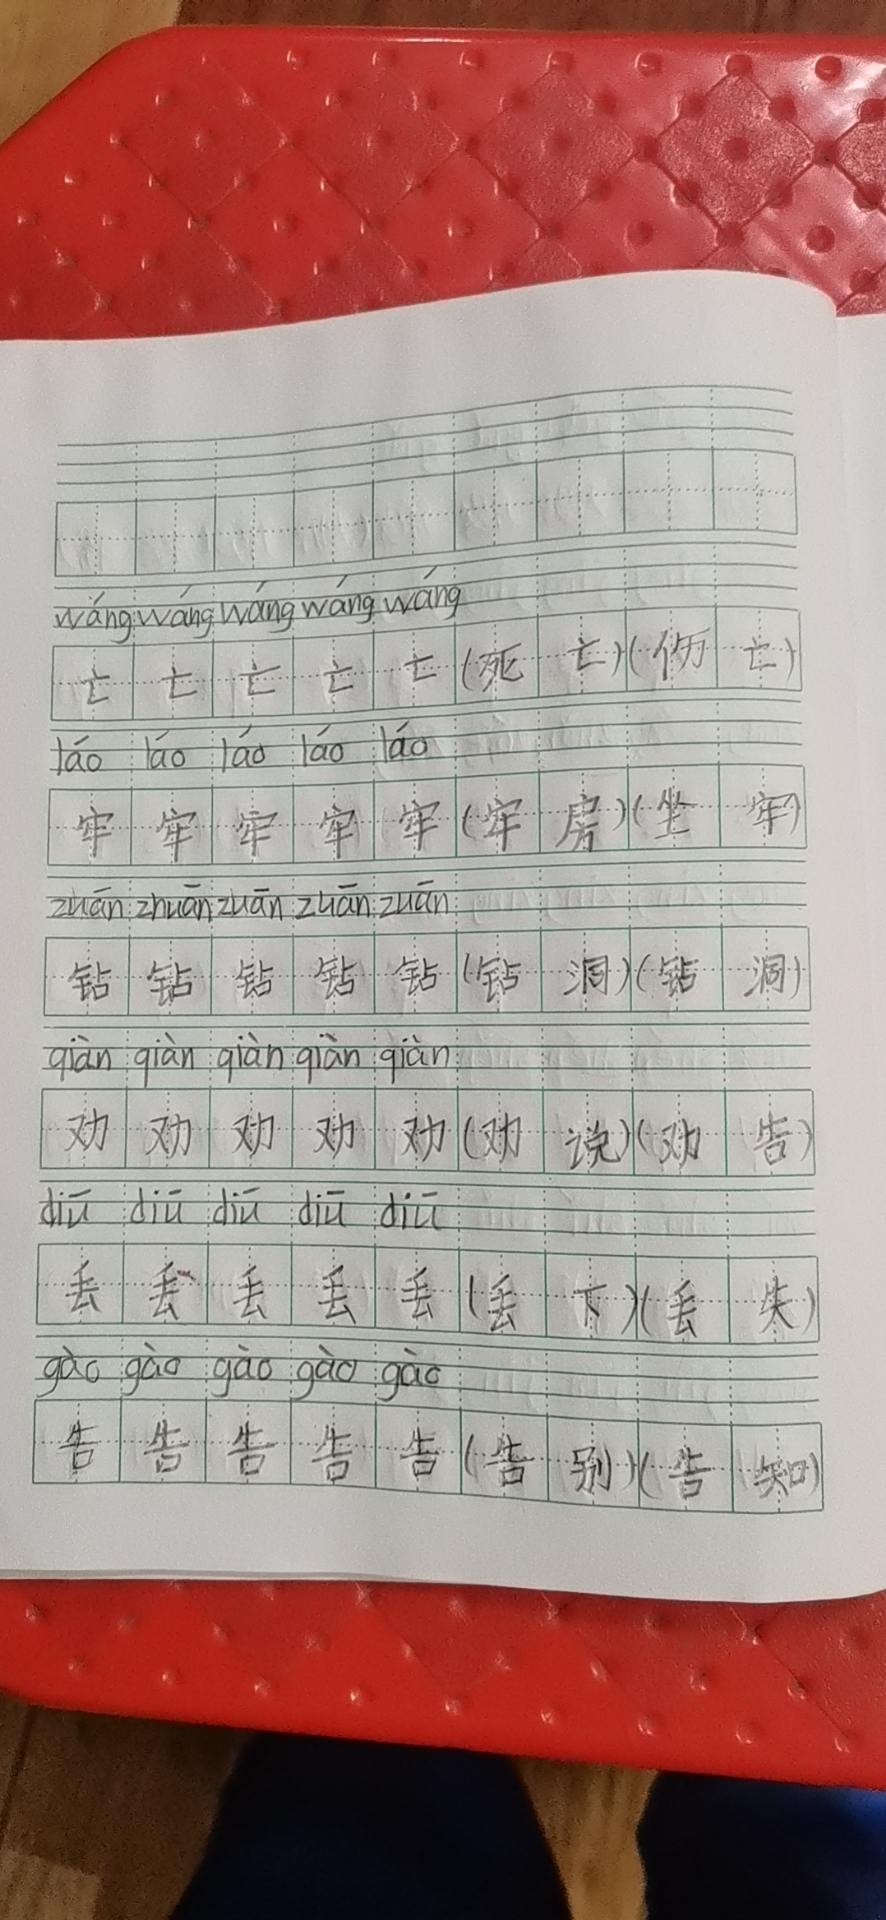 wáng wáng wáng wáng wáng
亡 亡 亡 亡 亡 (死 亡)(伤 亡)
láo láo láo láo láo
牢 牢 牢 牢 牢 (牢 房)(坐 牢)
zuān zhuān zuān zuān zuān
钻 钻 钻 钻 钻 (钻 洞)(钻 洞)
qiàn qiàn qiàn qiàn qiàn
劝 劝 劝 劝 劝 (劝 说)(劝 告)
diū diū diū diū diū
丢 丢 丢 丢 丢 (丢 下)(丢 失)
gào gào gào gào gào
告 告 告 告 告 (告 别)(告 知)